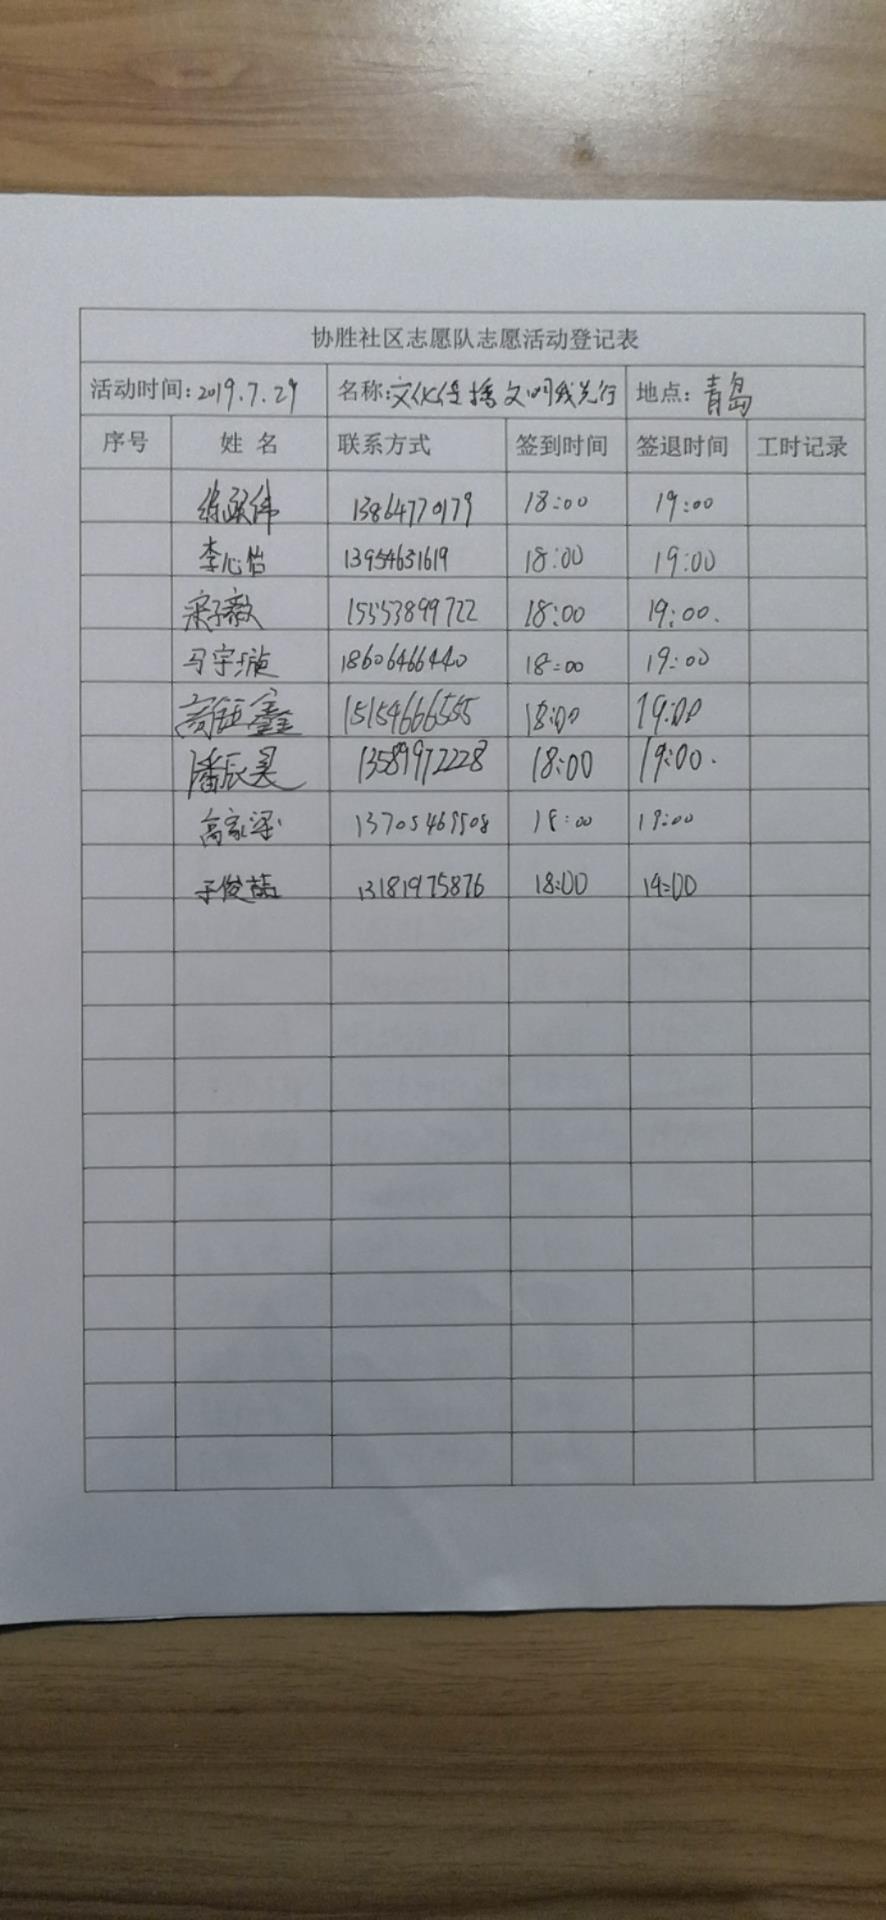 协胜社区志愿队志愿活动登记表
活动时间:2019.7.29 名称:文化传播文明我先行 地点:青岛
序号 姓名 联系方式 签到时间 签退时间 工时记录
13864770179 18:00 19:00
李心怡 13954631619 18:00 19:00
15553899722 18:00 19:00.
马宇璇 18606466440 18:00 19:00
高钰鑫 15154666555 18:00 19:00
潘辰昊 13589972228 18:00 19:00.
高家梁 13705469508 18:00 19:00
于俊 13181975876 18:00 19:00